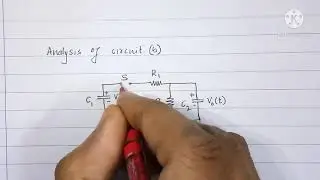 Analysis of circuit (b)
S R₁
C₁ + V C₂ + V₀(t)